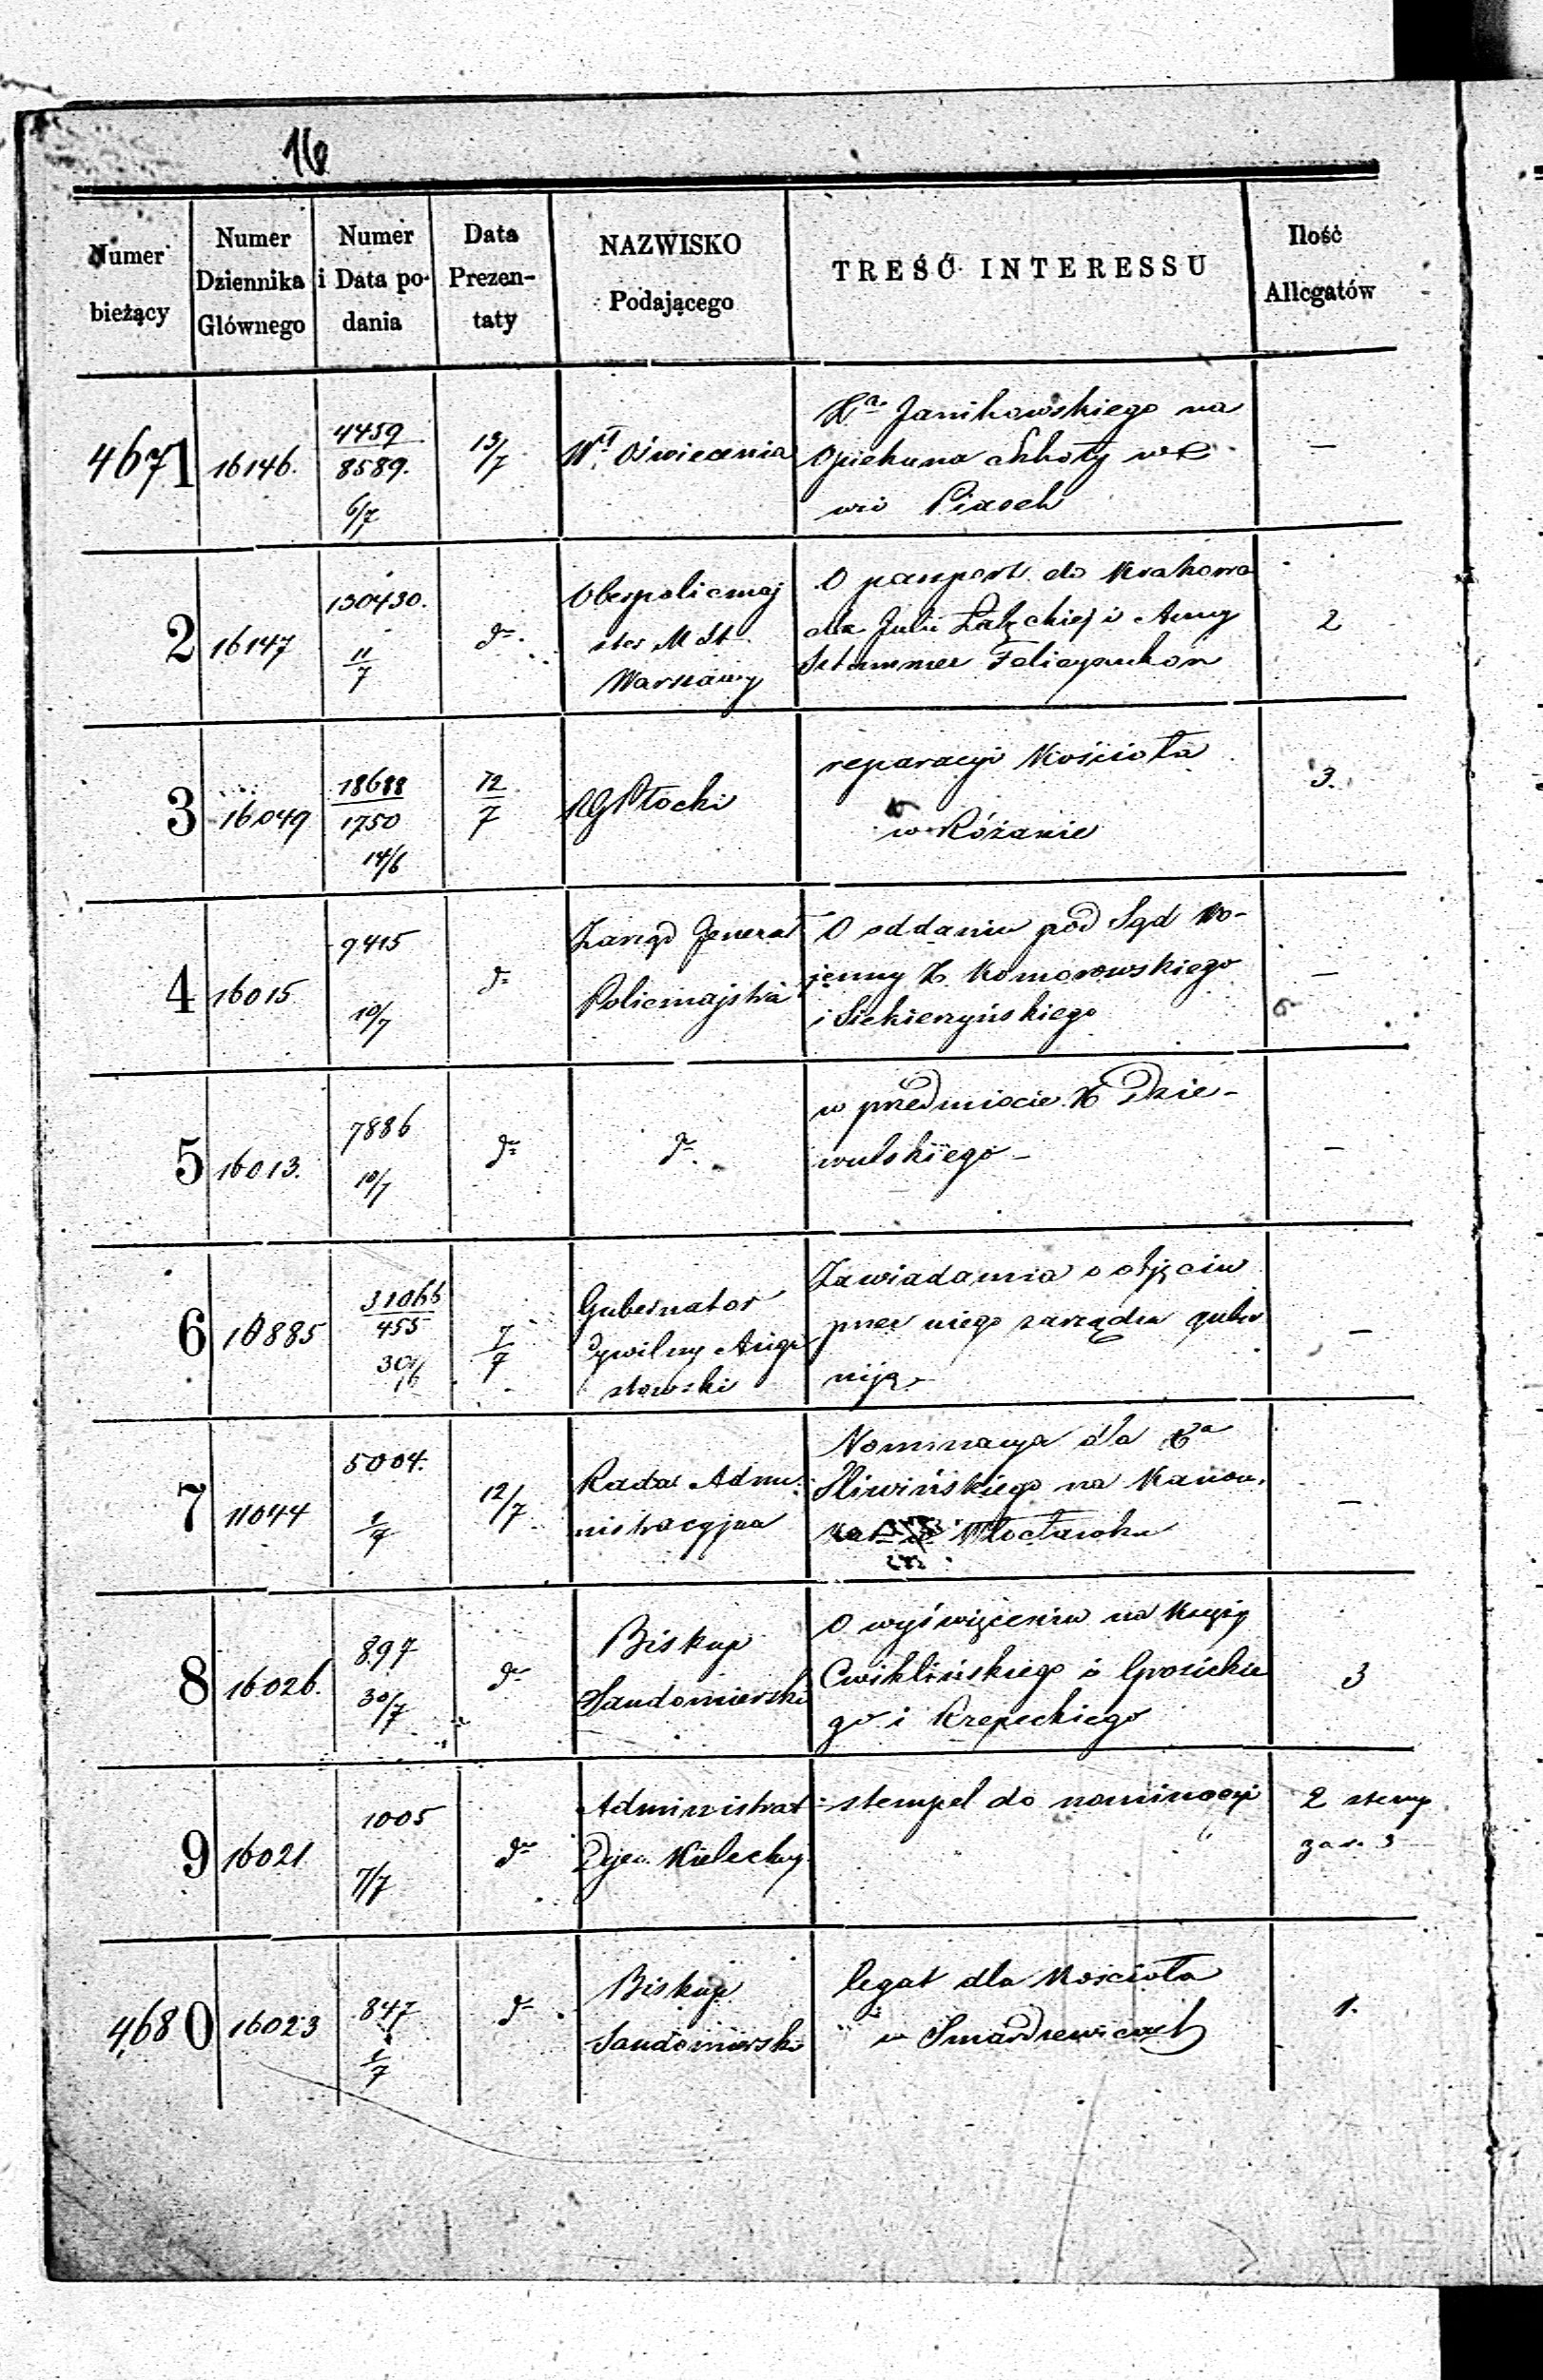 16
Numer bieżący | Numer Dziennika Głównego | Numer i Data podania | Data Prezentaty | NAZWISKO Podającego | TREŚĆ INTERESSU | Ilość Allegatów
4671 | 16146. | 4459 / 8589. 6/7 | 13/7 | Wł. Oświecenia | Xa Janikowskiego na
Opiekuna Szkoły we
wsi Piasek | —
2 | 16147 | 130430. 11/7 | do. | Oberpolicmaj
ster M St
Warszawy | O passport do Krakowa
dla Julii Załęckiej i Anny
Sztummer Felicyanków | 2
3 | 16049 | 18688 / 1750 14/6 | 12/7 | RG Płocki | reparacyi Kościoła
w Różanie | 3.
4 | 16015 | 9415 10/7 | do | Zarząd Jenerał
Policmajstra | O oddaniu pod Sąd Wo-
jenny X Komorowskiego
i Siekierzyńskiego | —
5 | 16013. | 7886 10/7 | do | do. | w przedmiocie X Dzie-
wulskiego – | —
6 | 10885 | 31066 / 455 30/6 | 7/7 | Gubernator
Cywilny Augu
stowski | Zawiadamia o objęciu
przez niego zarządu guber
niją. | —
7 | 11044 | 5004. 1/7 | 12/7 | Rada Admi-
nistracyjna | Nominacya dla Xa
Śliwińskiego na Kanon.
Włocławku | —
8 | 16026. | 897 30/7 | do | Biskup
Sandomierski | O wyświęceniu na Księży
Cwiklińskiego i Grosickie
go i Rzepeckiego | 3
9 | 16021 | 1005 7/7 | do | Administrat:
Dyec. Kieleckiej | stempel do nominacyi | 2 stemp
za r. 3
4680 | 16023 | 847 1/7 | do | Biskup
Sandomierski | legat dla Kościoła
w Smardzewicach | 1.